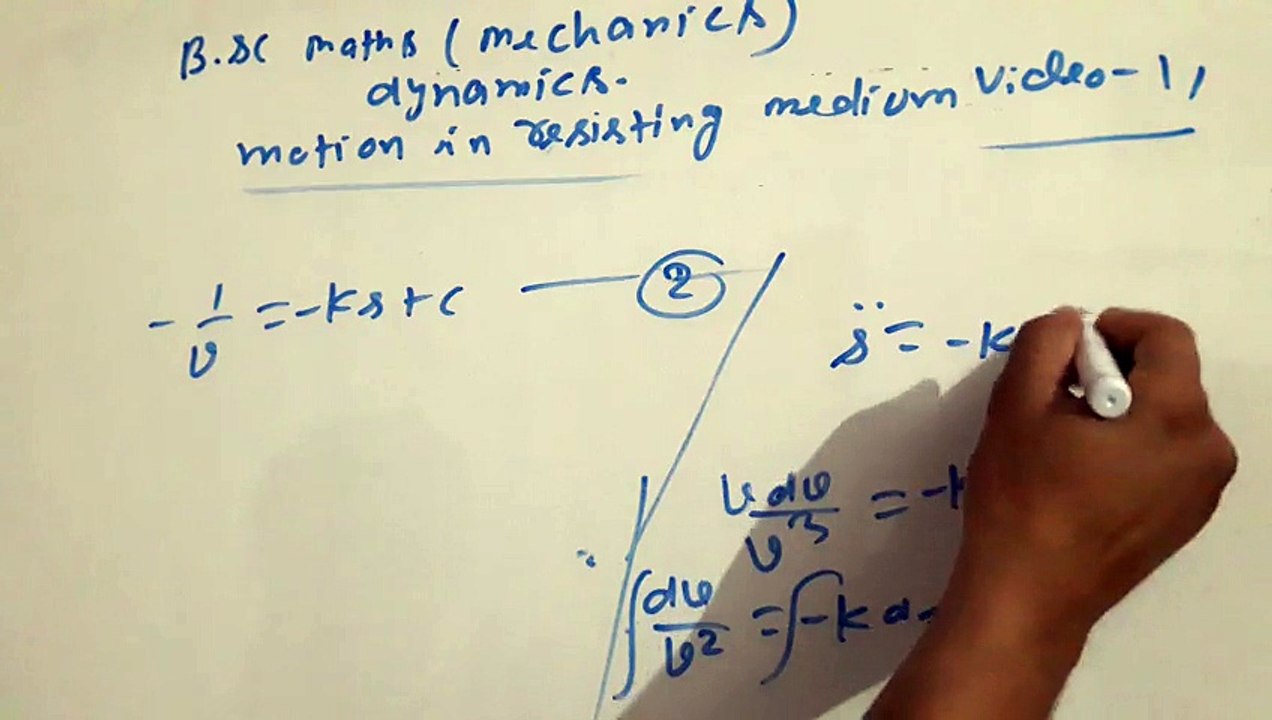 B.SC maths (mechanics)
dynamics.
motion in resisting medium Video-1,
-1/v = -ks + c — ②
s̈ = -k
v dv/v³ = -k
∫ dv/v² = ∫ -k d